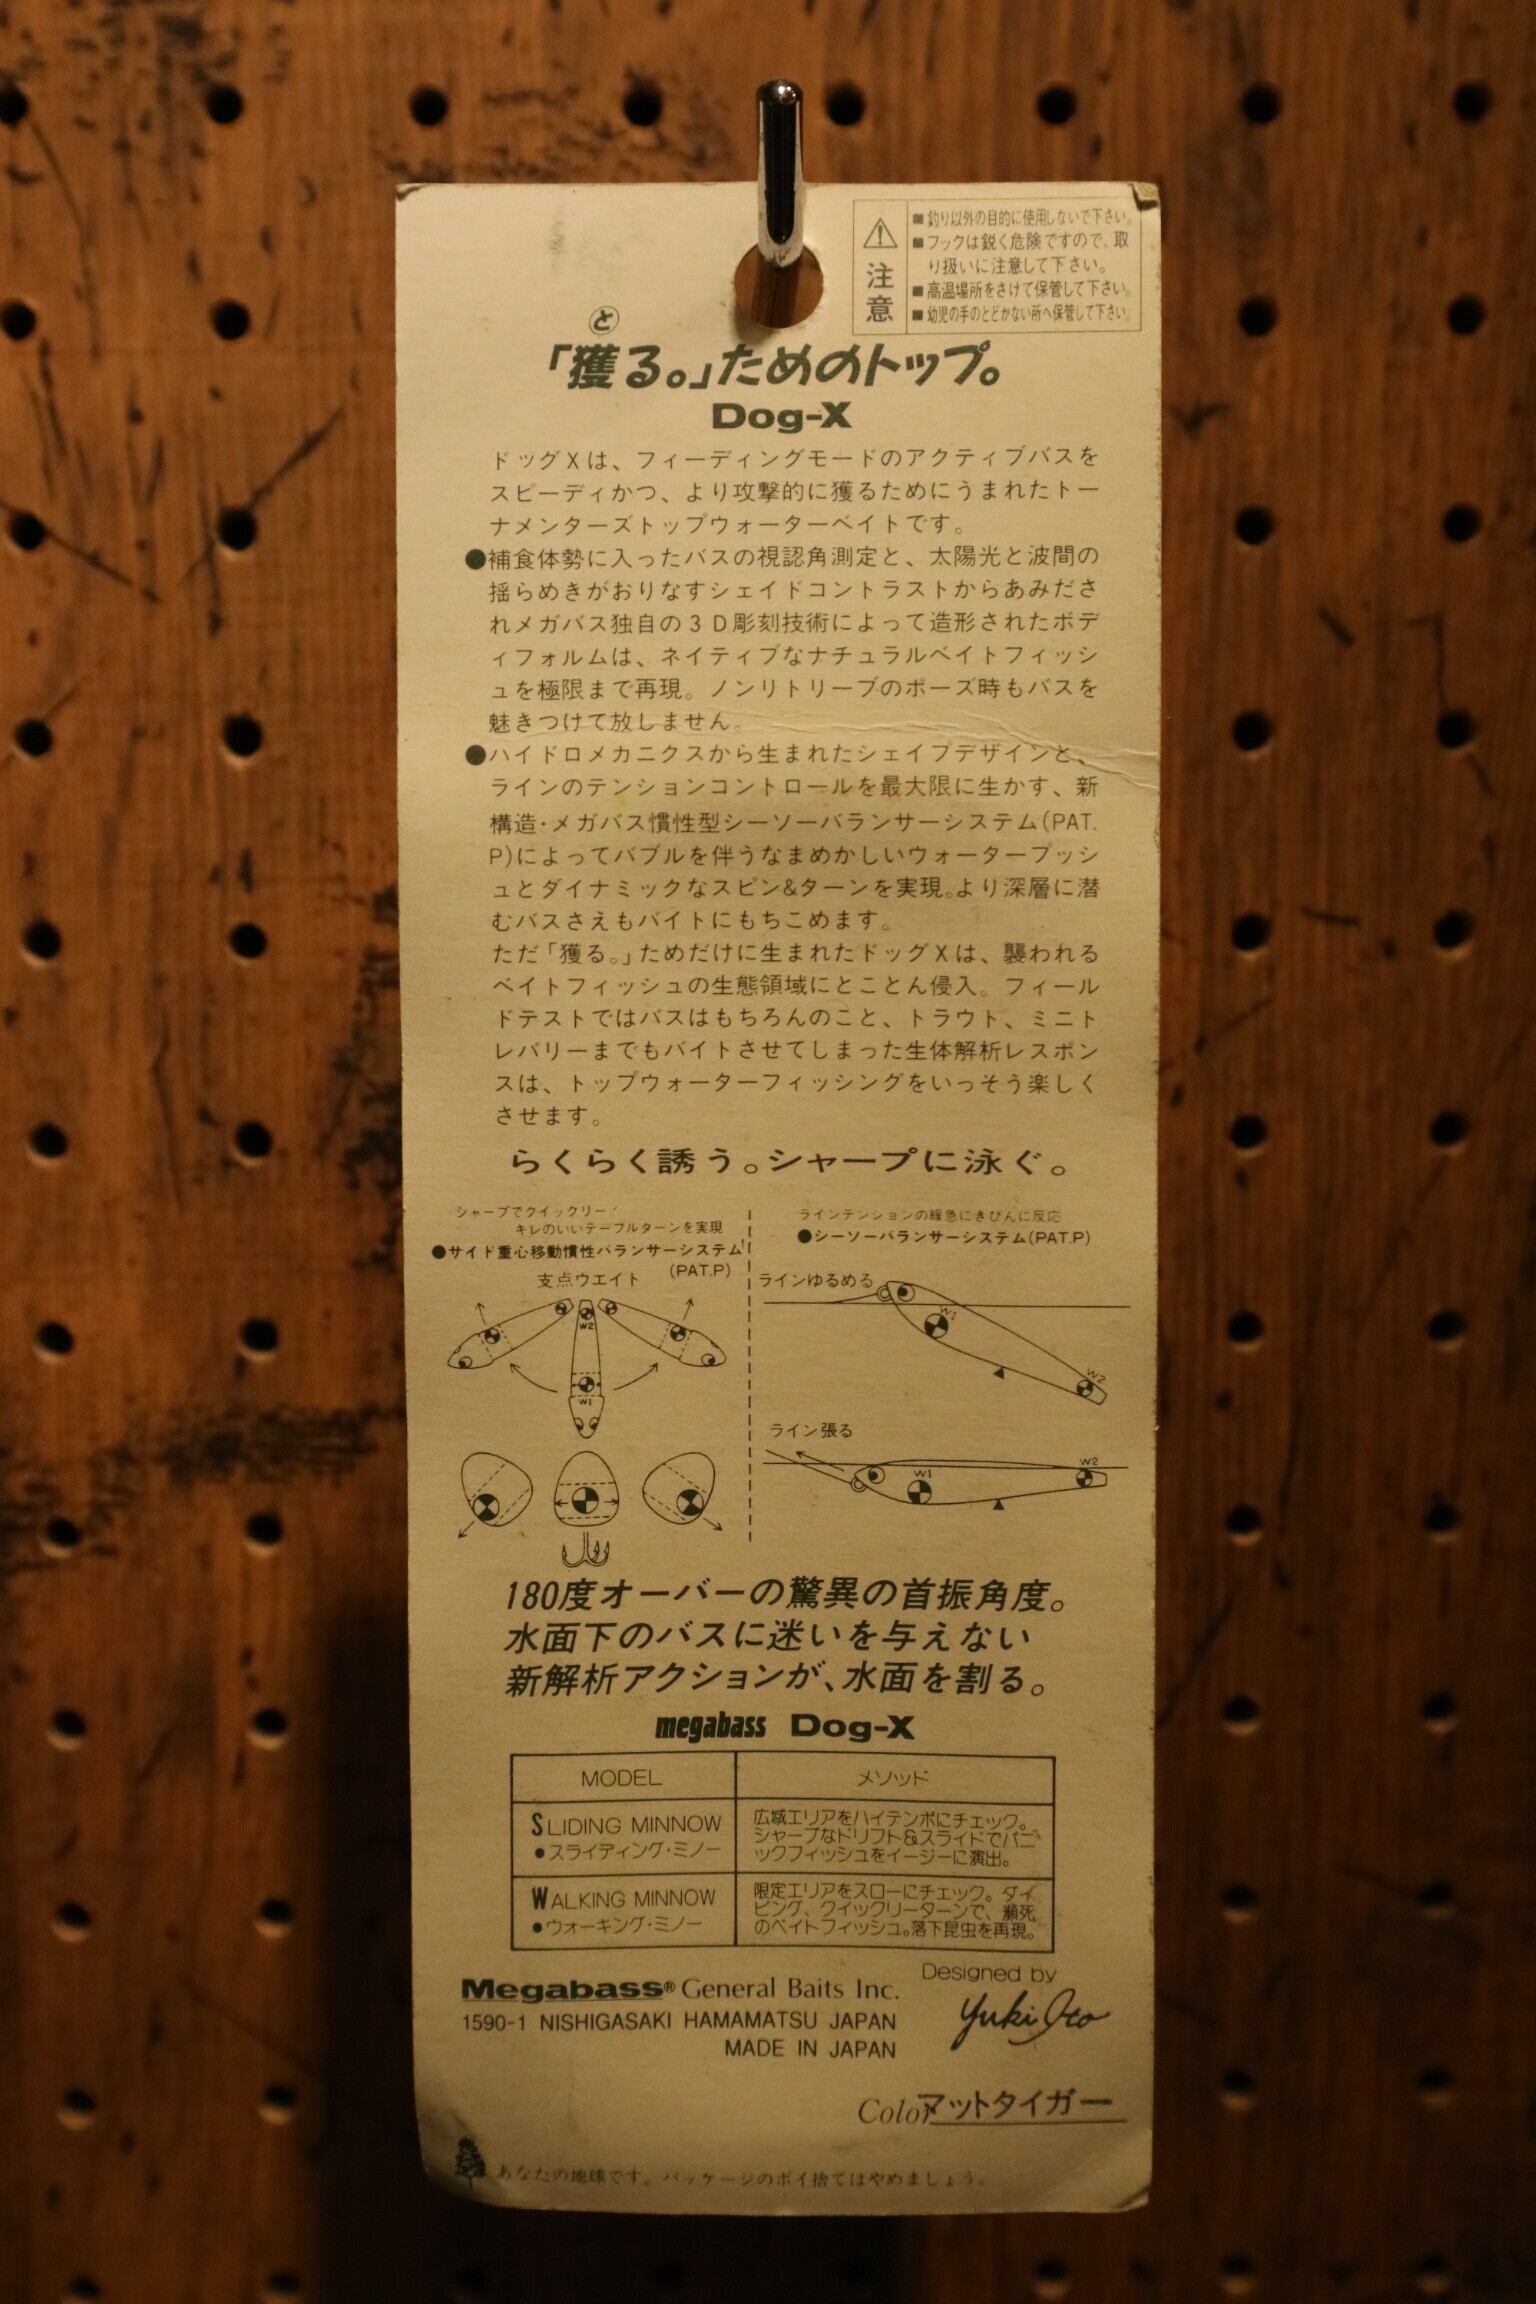 注意
■釣り以外の目的に使用しないで下さい。
■フックは鋭く危険ですので、取
り扱いに注意して下さい。
■高温場所をさけて保管して下さい。
■幼児の手のとどかない所へ保管して下さい。
と
「獲る。」ためのトップ。
Dog-X
ドッグXは、フィーディングモードのアクティブバスを
スピーディかつ、より攻撃的に獲るためにうまれたトー
ナメンターズトップウォーターベイトです。
●補食体勢に入ったバスの視認角測定と、太陽光と波間の
揺らめきがおりなすシェイドコントラストからあみださ
れメガバス独自の3D彫刻技術によって造形されたボデ
ィフォルムは、ネイティブなナチュラルベイトフィッシ
ュを極限まで再現。ノンリトリーブのポーズ時もバスを
魅きつけて放しません。
●ハイドロメカニクスから生まれたシェイプデザインと、
ラインのテンションコントロールを最大限に生かす、新
構造・メガバス慣性型シーソーバランサーシステム(PAT.
P)によってバブルを伴うなまめかしいウォータープッシ
ュとダイナミックなスピン&ターンを実現。より深層に潜
むバスさえもバイトにもちこめます。
ただ「獲る。」ためだけに生まれたドッグXは、襲われる
ベイトフィッシュの生態領域にとことん侵入。フィール
ドテストではバスはもちろんのこと、トラウト、ミニト
レバリーまでもバイトさせてしまった生体解析レスポン
スは、トップウォーターフィッシングをいっそう楽しく
させます。
らくらく誘う。シャープに泳ぐ。
シャープでクイックリー
キレのいいテーブルターンを実現
●サイド重心移動慣性バランサーシステム
(PAT.P)
支点ウエイト
W2
W1
ラインテンションの緩急にきびんに反応
●シーソーバランサーシステム(PAT.P)
ラインゆるめる
W1
W2
ライン張る
W1
W2
180度オーバーの驚異の首振角度。
水面下のバスに迷いを与えない
新解析アクションが、水面を割る。
megabass Dog-X
MODEL メソッド
SLIDING MINNOW
●スライディング・ミノー
広域エリアをハイテンポにチェック。
シャープなドリフト&スライドでパニ
ックフィッシュをイージーに演出。
WALKING MINNOW
●ウォーキング・ミノー
限定エリアをスローにチェック。ダイ
ビング、クイックリーターンで、瀕死
のベイトフィッシュ。落下昆虫を再現。
Megabass® General Baits Inc.
1590-1 NISHIGASAKI HAMAMATSU JAPAN
MADE IN JAPAN
Designed by
Yuki Ito
Color マットタイガー
あなたの地球です。パッケージのポイ捨てはやめましょう。